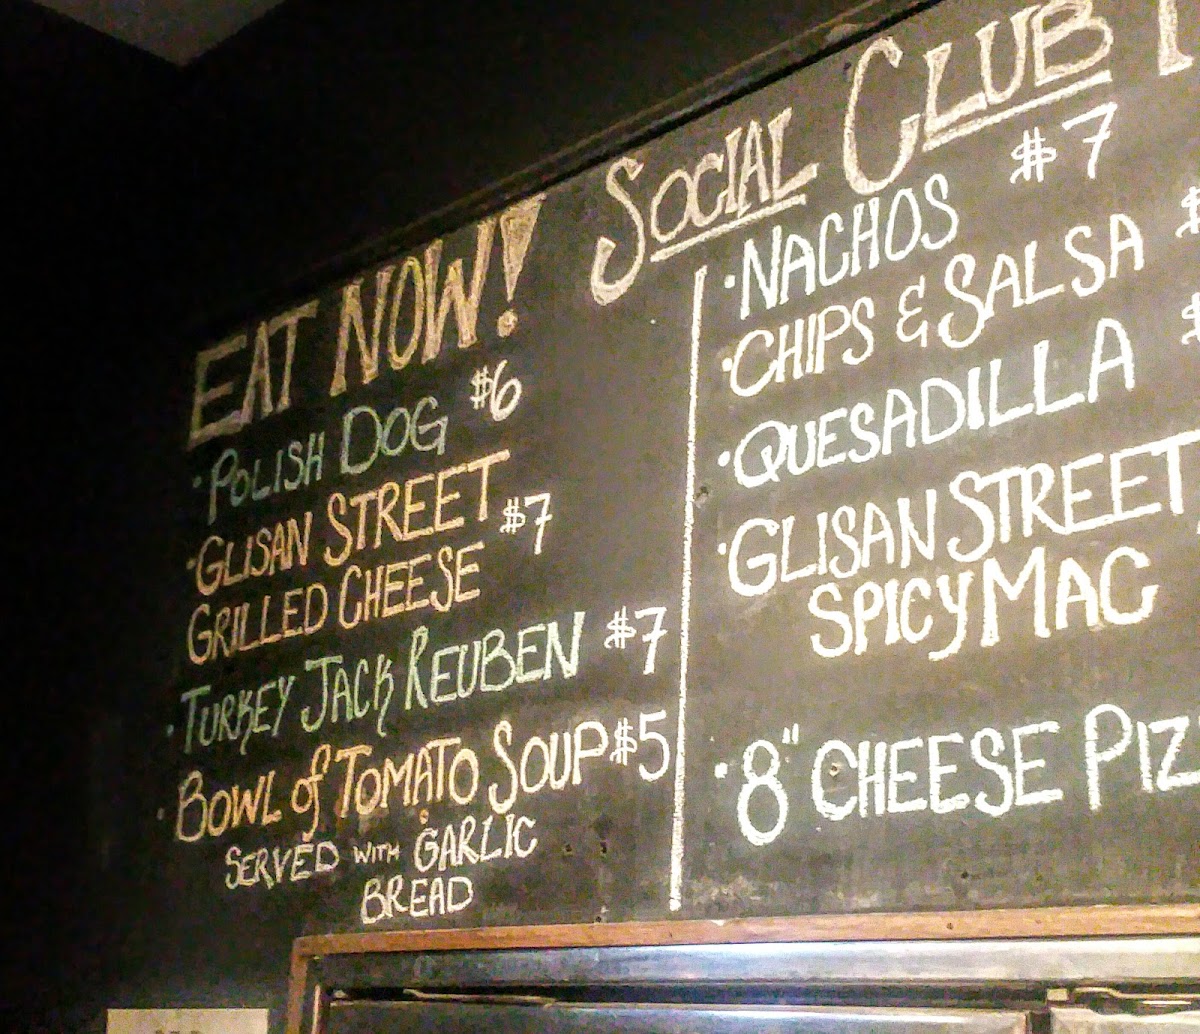 EAT NOW! SOCIAL CLUB
· POLISH DOG $6
· GLISAN STREET
GRILLED CHEESE $7
· TURKEY JACK REUBEN $7
· BOWL of TOMATO SOUP $5
SERVED WITH GARLIC
BREAD
· NACHOS $7
· CHIPS & SALSA $
· QUESADILLA $
· GLISAN STREET
SPICY MAC
· 8" CHEESE PIZ